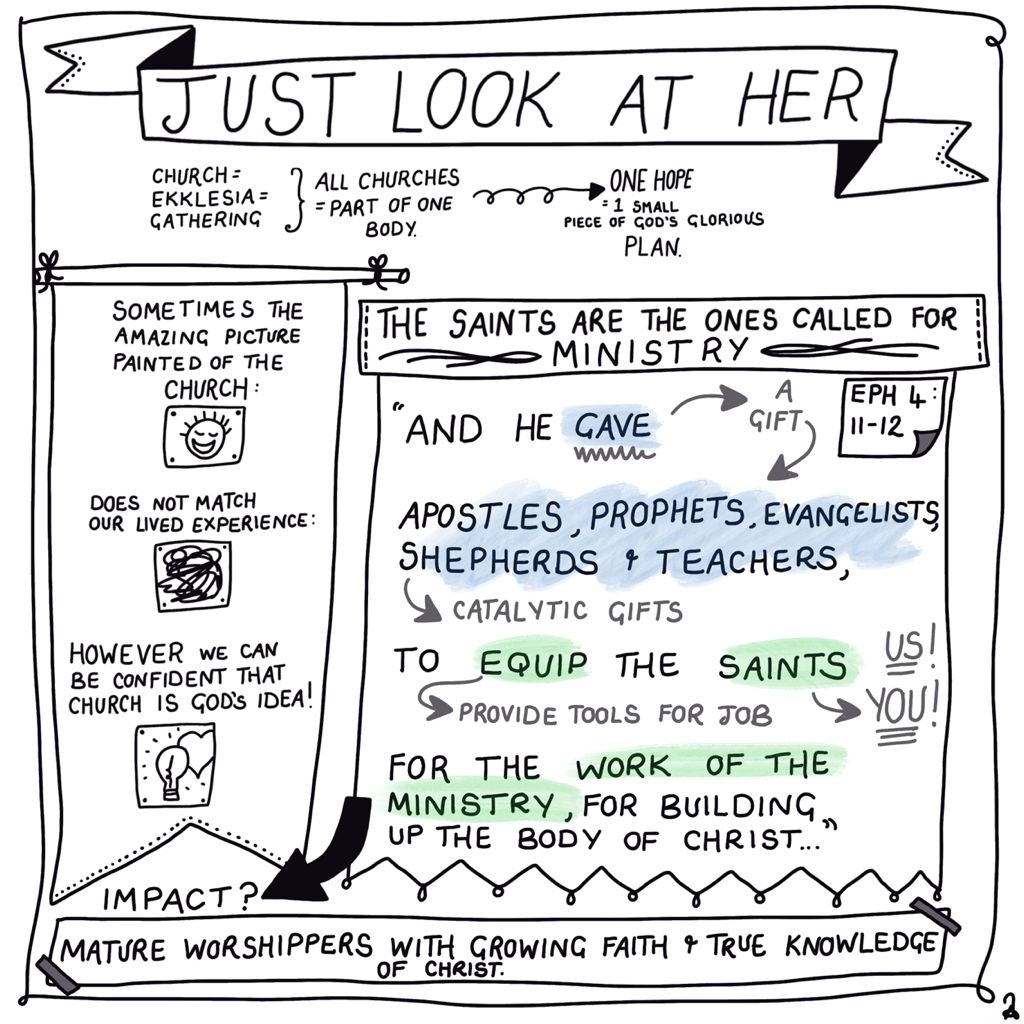 JUST LOOK AT HER
CHURCH =
EKKLESIA =
GATHERING
ALL CHURCHES
= PART OF ONE
BODY.
ONE HOPE
= 1 SMALL
PIECE OF GOD'S GLORIOUS
PLAN.
SOMETIMES THE
AMAZING PICTURE
PAINTED OF THE
CHURCH:
DOES NOT MATCH
OUR LIVED EXPERIENCE:
HOWEVER WE CAN
BE CONFIDENT THAT
CHURCH IS GOD'S IDEA!
THE SAINTS ARE THE ONES CALLED FOR
MINISTRY
"AND HE GAVE
A
GIFT
EPH 4:
11-12
APOSTLES, PROPHETS, EVANGELISTS,
SHEPHERDS & TEACHERS,
CATALYTIC GIFTS
TO EQUIP THE SAINTS
US!
PROVIDE TOOLS FOR JOB
YOU!
FOR THE WORK OF THE
MINISTRY, FOR BUILDING
UP THE BODY OF CHRIST..."
IMPACT?
MATURE WORSHIPPERS WITH GROWING FAITH & TRUE KNOWLEDGE
OF CHRIST.
2